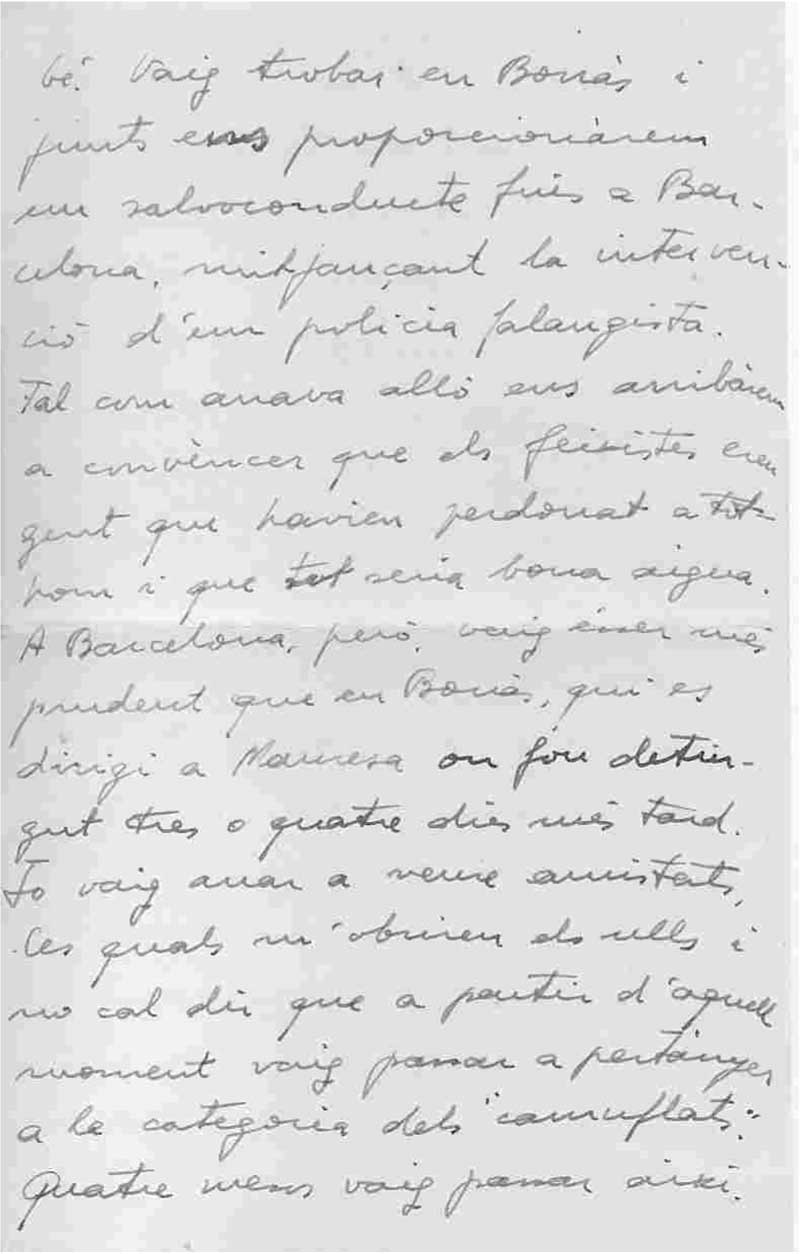 bé. Vaig trobar en Borràs i
junts ens proporcionàrem
un salvoconducte fins a Bar-
celona, mitjançant la interven-
ció d'un policia falangista.
Tal com anava allò ens arribàrem
a convèncer que els feixistes eren
gent que havien perdonat a tot-
hom i que tot seria bona aigua.
A Barcelona, però, vaig ésser més
prudent que en Borràs, qui es
dirigí a Manresa on fou detin-
gut tres o quatre dies més tard.
Jo vaig anar a veure amistats,
les quals m'obriren els ulls i
no cal dir que a partir d'aquell
moment vaig passar a pertànyer
a la categoria dels "camuflats".
Quatre mesos vaig passar així.